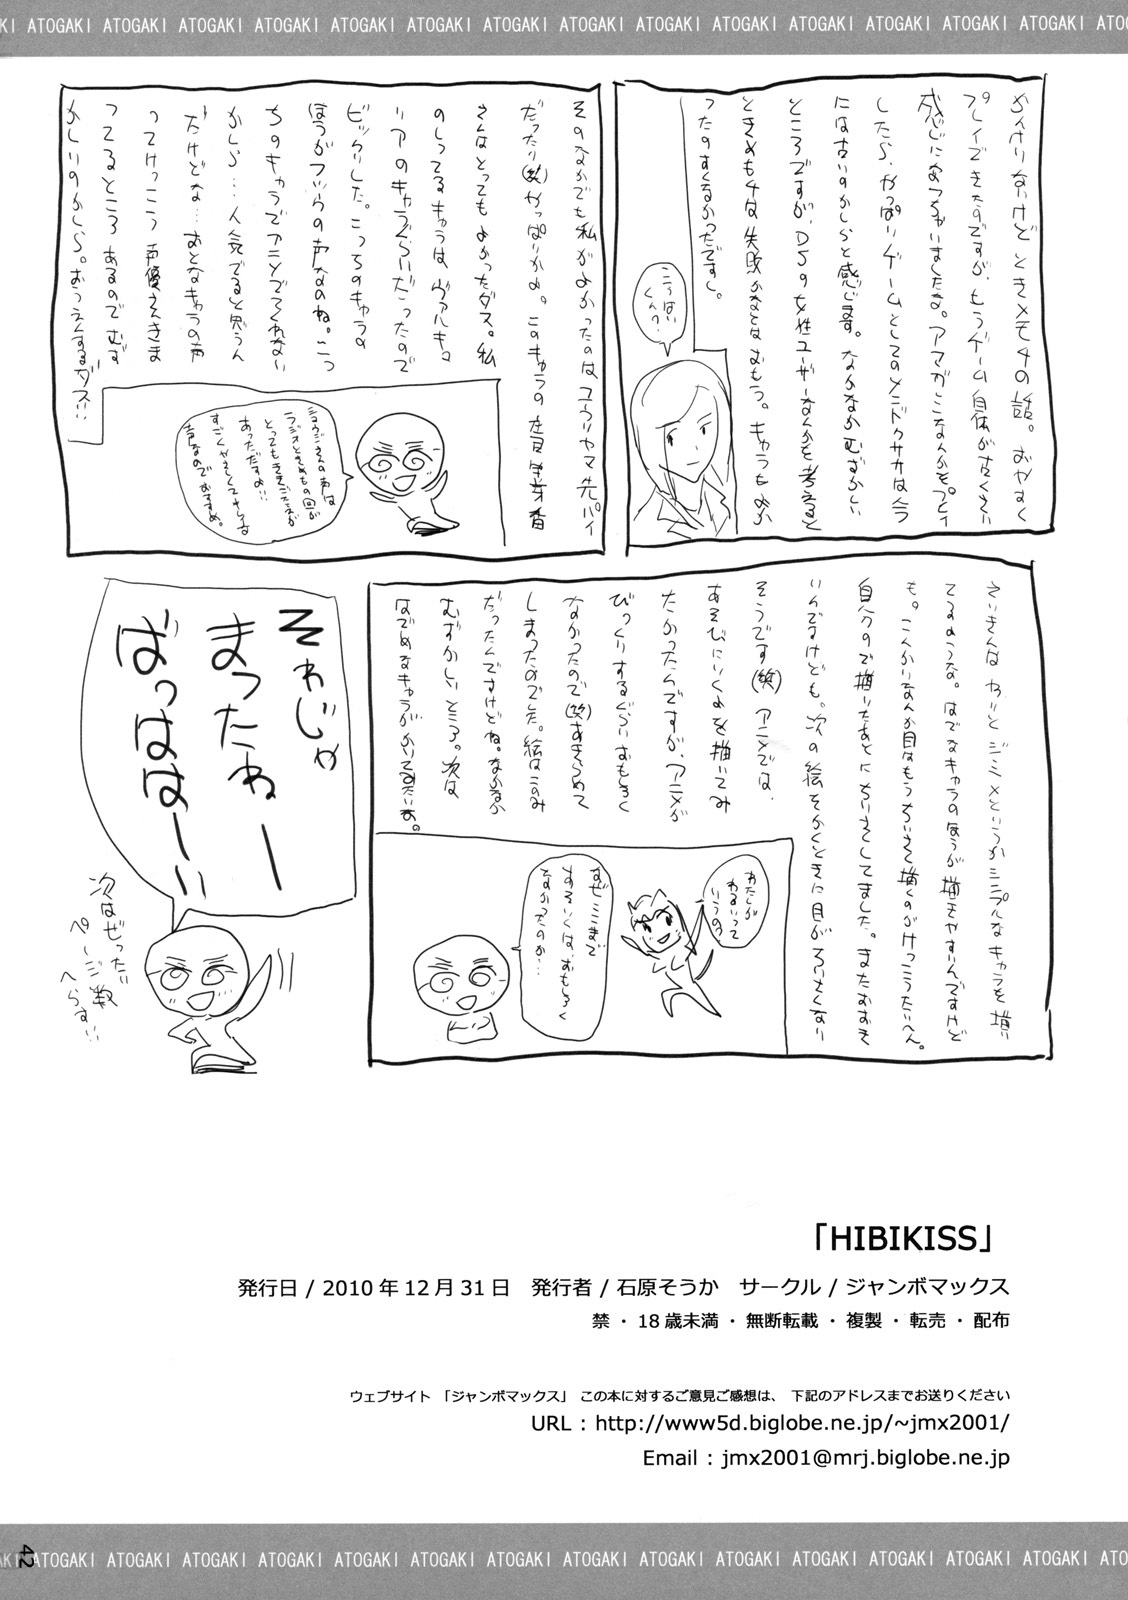 ATOGAKI ATOGAKI ATOGAKI ATOGAKI ATOGAKI ATOGAKI ATOGAKI ATOGAKI ATOGAKI ATOGAKI ATOGAKI ATOGAKI ATOGAKI ATOGAKI
かんけいないけど ときメモ4の話。おやすく
プレイできたのですが、もうゲーム自体が古くさい
感じにあっちゃいましたな。アマガミこなんかをプレイ
したら、やっぱりゲームとしてのメンドクササは今
には古いのかしらと感じます。なかなかむずかしい
ところですが、DSの女性ユーザーなんかを考えると
ときメモ4は失敗かなとはおもう。キャラもよか
ったのすくなかったですし。
こうはい
くん?
そのなかでも私がよかったのはユウリヤマ先パイ
だったり(笑)やっぱりかよ。このキャラの
さんはとってもよかったダス。私
のしってるキャラは ヴァルキュ
リアのキャラぐらいだったので
ビックリした。こっちのキャラの
ほうがフツウの声なのね。こっ
ちのキャラでアニメでてくれない
かしら…人気でると思うん
だけどな…おとなキャラの声
ってけっこう 声優さんきま
ってるところあるのでむず
かしいのかしら。おうえんするダス!!
ショウジさんの声は
ラジオときめもの回が
とってもききごたえが
あっただすよ!!
すごくやさしくてすてきな
声なのでおすすめ。
さいきんは わりと ジミメというかシンプルなキャラを描い
てるような。はでなキャラのほうが描きやすいんですけど
も。こんかいなんか目はもうちいさく描くのがけっこうたいへん。
自分ので描いたあとにちいさくしてました。またおおき
いんですけども。次の絵をかくときに目がちいさくなり
そうです(笑)アニメでは、
あそびにいくよを描いてみ
たかったんですが、アニメが
びっくりするぐらいおもしろく
なかったので(笑)あきらめて
しまったのでした。絵はこのみ
だったんですけどね。なかなか
むずかしいところ。次は
はでめなキャラがかいてみたいな。
わたしが
わるいって
いうの?
なぜここまで
すがすがしくは、おもしろく
なかったのか…
それじゃ
まったねー
ばっはは〜い
次はぜったい
ページ数
へらす!!
「HIBIKISS」
発行日 / 2010 年 12 月 31 日　発行者 / 石原そうか　サークル / ジャンボマックス
禁 ・ 18 歳未満 ・ 無断転載 ・ 複製 ・ 転売 ・ 配布
ウェブサイト 「ジャンボマックス」 この本に対するご意見ご感想は、 下記のアドレスまでお送りください
URL : http://www5d.biglobe.ne.jp/~jmx2001/
Email : jmx2001@mrj.biglobe.ne.jp
42
ATOGAKI ATOGAKI ATOGAKI ATOGAKI ATOGAKI ATOGAKI ATOGAKI ATOGAKI ATOGAKI ATOGAKI ATOGAKI ATOGAKI ATOGAKI ATOGAKI